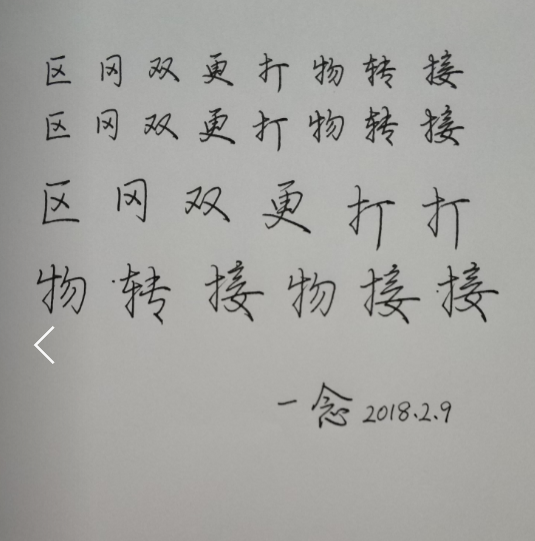 区冈双更打物转接
区冈双更打物转接
区冈双更打打
物转接物接接
一念 2018.2.9